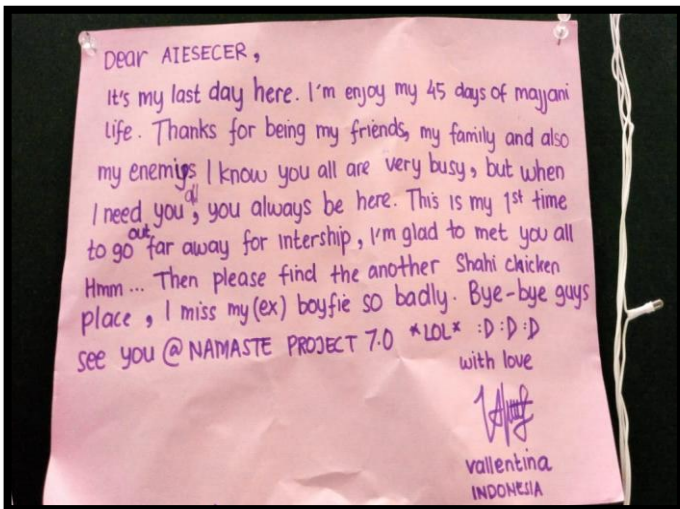 Dear AIESECER,
It's my last day here. I'm enjoy my 45 days of majjani
life. Thanks for being my friends, my family and also
my enemies I know you all are very busy, but when
I need you all, you always be here. This is my 1st time
to go out far away for intership, I'm glad to met you all
Hmm... Then please find the another Shahi chicken
place, I miss my (ex) boyfie so badly. Bye-bye guys
see you @ NAMASTE PROJECT 7.0 *LOL* :D :D :D
with love
vallentina
INDONESIA